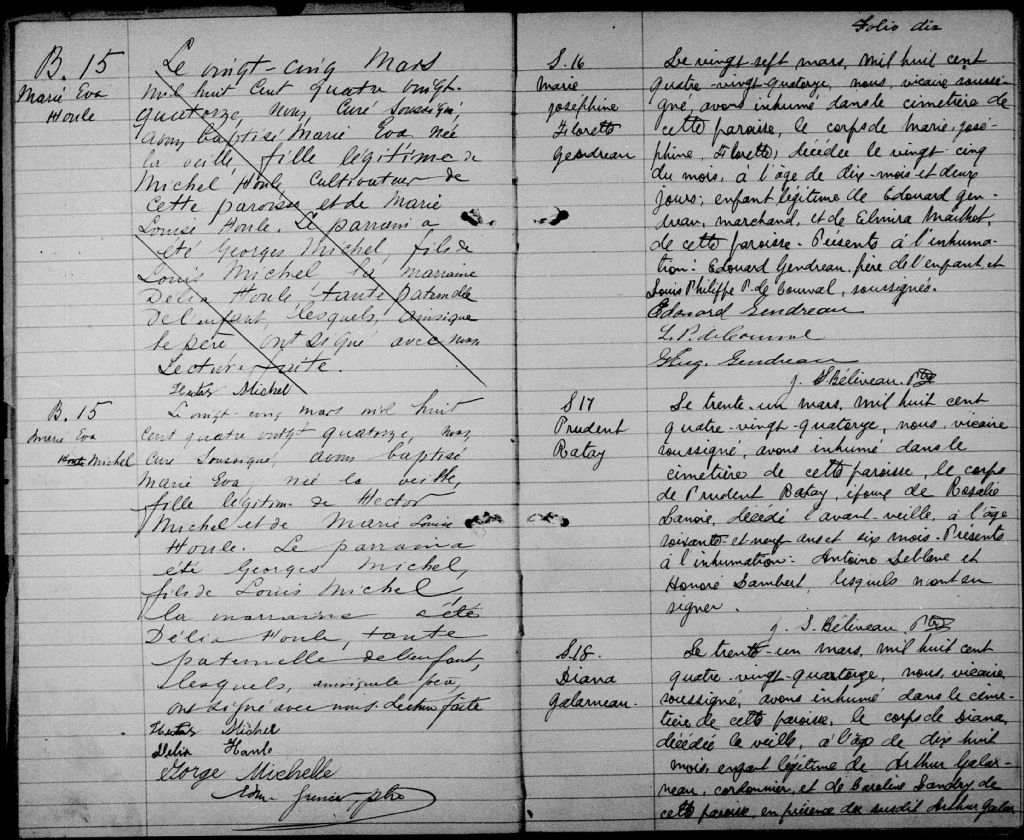 B. 15
Marie Eva
Houle
Le vingt-cinq Mars
mil huit Cent quatre vingt-
quatorze, nous, Curé Soussigné,
avons baptisé Marie Eva née
la veille, fille légitime de
Michel Houle Cultivateur de
cette paroisse et de Marie
Louise Houle. Le parrain a
été Georges Michel, fils de
Louis Michel la marraine
Délia Houle, tante paternelle
de l'enfant, lesquels, ainsique
le père ont signé avec nous.
Lecture faite.
Hector Michel
B. 15
Marie Eva
Houle Michel
Le vingt-cinq mars mil huit
cent quatre vingt quatorze, nous,
Curé Soussigné, avons baptisé
Marie Eva, née la veille,
fille légitime de Hector
Michel et de Marie Louise
Houle. Le parrain a
été Georges Michel,
fils de Louis Michel
la marraine a été
Délia Houle, tante
paternelle de l'enfant,
lesquels, ainsique le père,
ont signé avec nous. Lecture faite
Hector Michel
Delia Houle
Gorge Michelle
ptre
Folio dix
S. 16
Marie
Joséphine
Floretta
Gendreau
Le vingt-sept mars, mil huit cent
quatre-vingt-quatorze, nous, vicaire soussi-
gné, avons inhumé dans le cimetière de
cette paroisse, le corps de Marie-José-
phine, Floretta, décédée le vingt-cinq
du mois, à l'âge de dix-mois et deux
jours; enfant légitime de Edouard Gen-
dreau, marchand, et de Elmira Mailhot,
de cette paroisse. Présents à l'inhuma-
tion: Edouard Gendreau, père de l'enfant, et
Louis Philippe P. de Courval, soussignés.
Edouard Gendreau
L. P. de Courval
Eug. Gendreau
J. S. Béliveau Ptre
S 17
Prudent
Ratay
Le trente-un mars, mil huit cent
quatre-vingt-quatorze, nous, vicaire
soussigné, avons inhumé dans le
cimetière de cette paroisse, le corps
de Prudent Ratay, époux de Rosalie
Lanoie, décédé l'avant-veille, à l'âge
soixante-et-neuf ans et six mois. Présents
à l'inhumation: Antoine Leblanc et
Honoré Lambert, lesquels n'ont su
signer.
J. S. Béliveau Ptre
S. 18.
Diana
Galarneau.
Le trente-un mars, mil huit cent
quatre-vingt-quartorze, nous, vicaire
soussigné, avons inhumé dans le cime-
tière de cette paroisse, le corps de Diana,
décédée la veille, à l'âge de dix huit
mois, enfant légitime de Arthur Galar-
neau, cordonnier, et de Caroline Landry, de
cette paroisse, en présence du susdit Arthur Galar